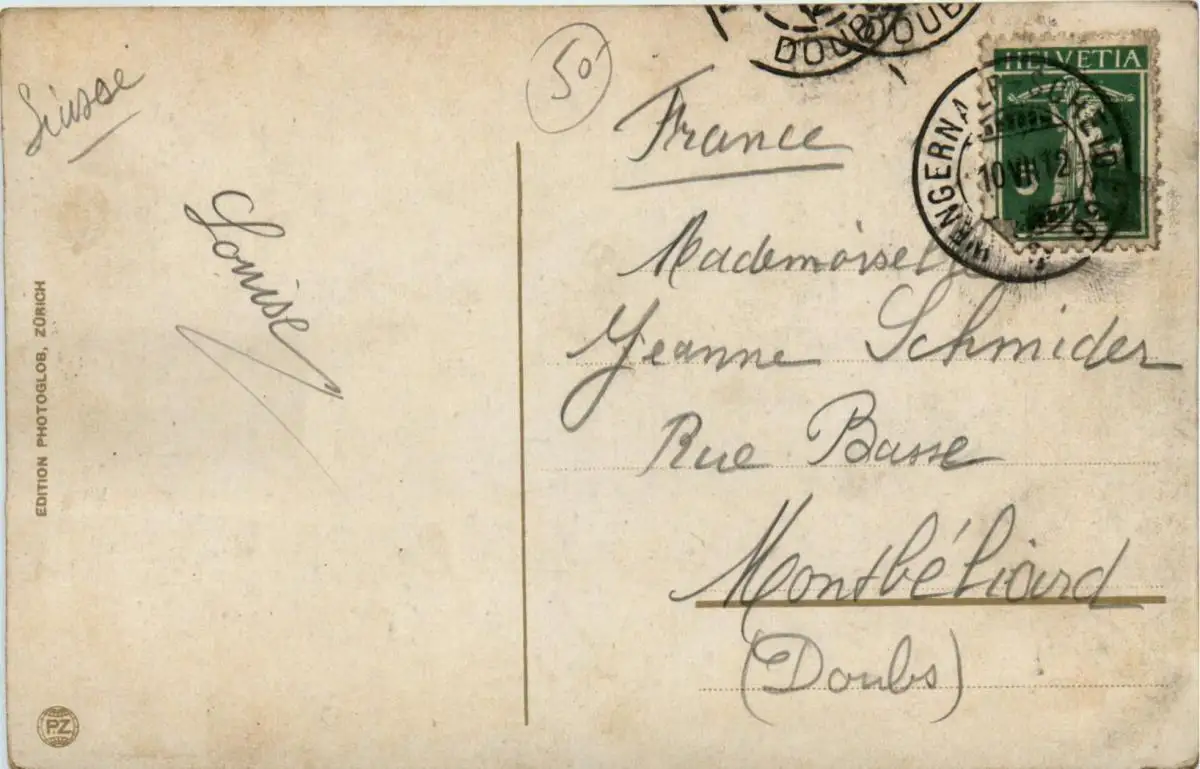 Suisse
50
DOUB
DOUB
HELVETIA
WENGERNALP-SCHEIDEGG
10 VII 12
France
Mademoiselle
Jeanne Schmider
Rue Basse
Montbéliard
(Doubs)
Louise
EDITION PHOTOGLOB, ZÜRICH
P.Z.